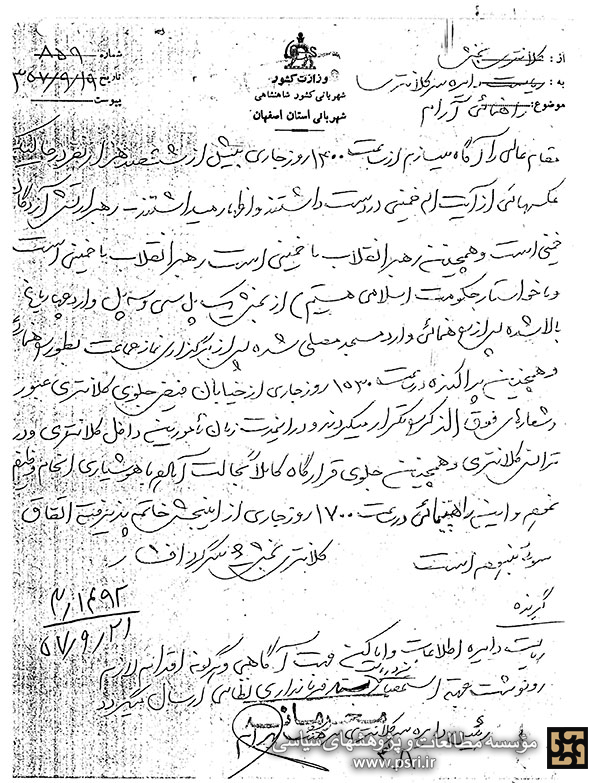 از: کلانتری بخش
به: ریاست دایره سرکلانتری
موضوع: راهپیمائی آرام
وزارت کشور
شهربانی کشور شاهنشاهی
شهربانی استان اصفهان
شماره ۸۵۹
تاریخ ۳۵۷/۹/۱۹
پیوست
مقام عالی را آگاه میسازم از ساعت ۱۴۰۰ روز جاری بیش از ششصد هزار نفر در حالیکه
عکسهائی از آیت اله خمینی در دست داشتند و اظهار میداشتند رهبر ارتش آزادگان
خمینی است و همچنین رهبر انقلاب ما خمینی است رهبر انقلاب با خمینی است
و ما خواستار حکومت اسلامی هستیم) از بخش یک پل سی و سه پل وارد چهارباغ
بالا شده پس از راهپیمائی وارد مسجد مصلی شده پس از برگزاری نماز جماعت بطور
و همچنین پراکنده در ساعت ۱۵۳۰ روز جاری از خیابان فیض جلوی کلانتری عبور
و شعارهای فوق الذکر را تکرار میکردند و در این مدت زمان مأمورین داخل کلانتری و در
تراس کلانتری و همچنین جلوی قرارگاه کاملا بحالت آرام با هوشیاری انجام وظیفه
نمودیم و این راهپیمائی در ساعت ۱۷۰۰ روز جاری از این بخش خاتمه پذیرفت اتفاق
سوئی نبوده است
کلانتری بخش ۶ سرگرد
۲/۱۴۹۲
۵۷/۹/۲۱
گیرنده
ریاست دایره اطلاعات جهت آگاهی و هرگونه اقدام لازم
رونوشت جهت استحضار فرمانداری نظامی ارسال میگردد
رئیس دایره سرکلانتری سرهنگ
موسسه مطالعات و پژوهشهای سیاسی
www.psri.ir